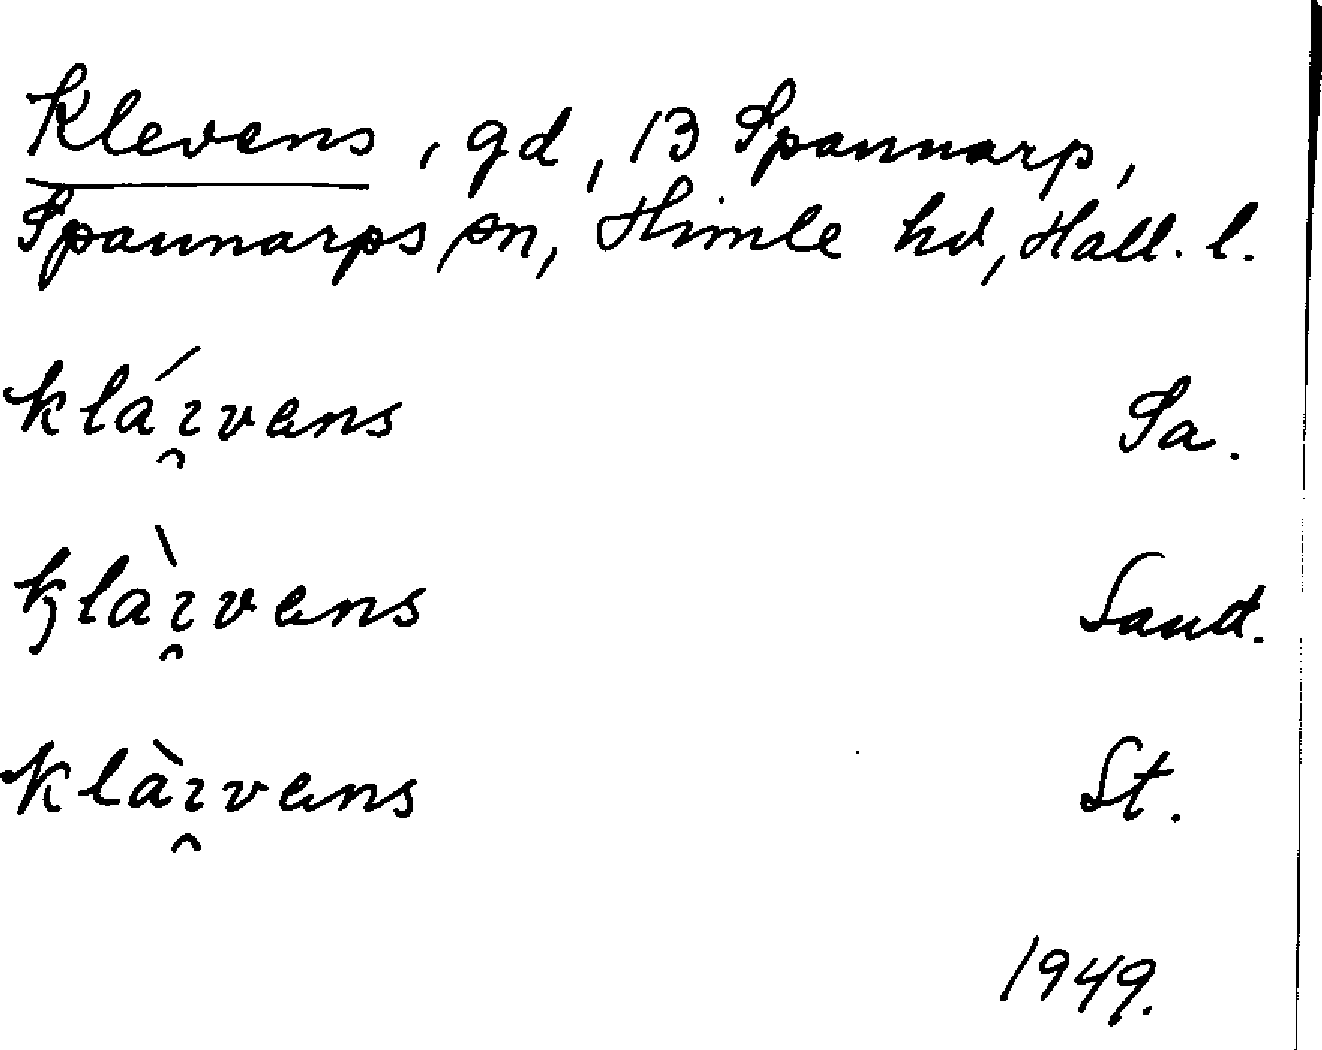 Klevens, gd, 13 Spannarp,
Spannarps sn, Himle hd, Hall. l.
klá́ɪ̯vens Sa.
kʒlàɪ̯vens Sand.
klàɪ̯vens St.
1949.